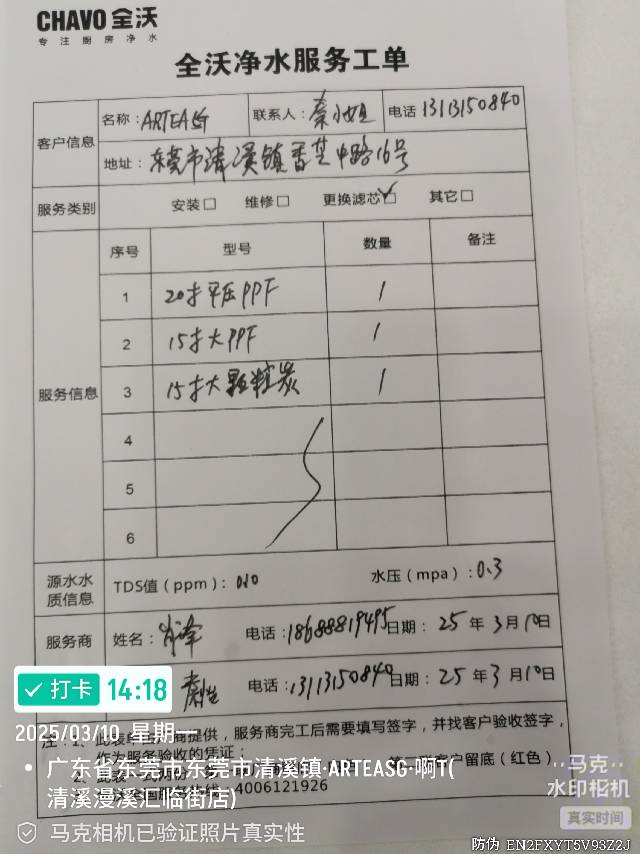 CHAVO 全沃
专注厨房净水
全沃净水服务工单
客户信息 名称：ARTEASG 联系人：秦小姐 电话 13113150840
地址：东莞市清溪镇香芒中路16号
服务类别 安装□ 维修□ 更换滤芯☑ 其它□
服务信息 序号 型号 数量 备注
1 20寸平压PPF 1
2 15寸大PPF 1
3 15寸大颗粒炭 1
4
5
6
源水水质信息 TDS值（ppm）：010 水压（mpa）：0.3
服务商 姓名： 电话：18688819495 日期：25年3月10日
电话：13113150840 日期：25年3月10日
打卡 14:18
2025/03/10 星期一
注：1、此表 商提供，服务商完工后需要填写签字，并找客户验收签字，
作为服务验收的凭证；
2、此表 客户留底（红色）
4006121926
广东省东莞市东莞市清溪镇·ARTEASG·啊T(
清溪漫溪汇临街店)
马克相机已验证照片真实性
马克
水印相机
真实时间
防伪 EN2FXYT5V93Z2J